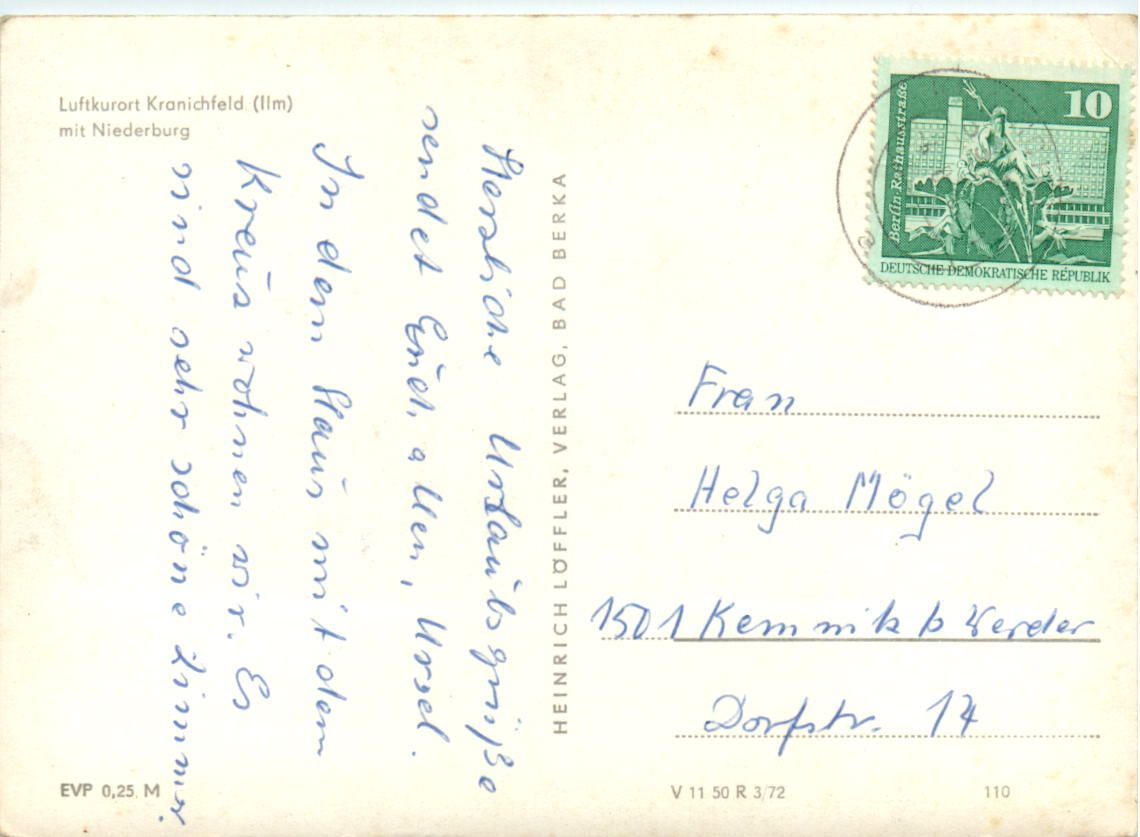 Luftkurort Kranichfeld (Ilm)
mit Niederburg
Herzliche Urlaubsgrüße
sendet Euch allen, Ursel.
In dem Haus mit dem
Kreuz wohnen wir. Es
sind sehr schöne Zimmer.
HEINRICH LÖFFLER, VERLAG, BAD BERKA
10
Berlin-Rathausstraße
DEUTSCHE DEMOKRATISCHE REPUBLIK
Frau
Helga Mögel
1501 Kemnitz b Werder
Dorfstr. 14
EVP 0,25 M
V 11 50 R 3/72
110